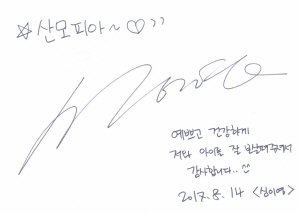 ☆산모피아~♡>>
예쁘고 건강하게
저와 아이를 잘 보살펴주셔서
감사합니다.. ^^
2017. 8. 14 <심이영>